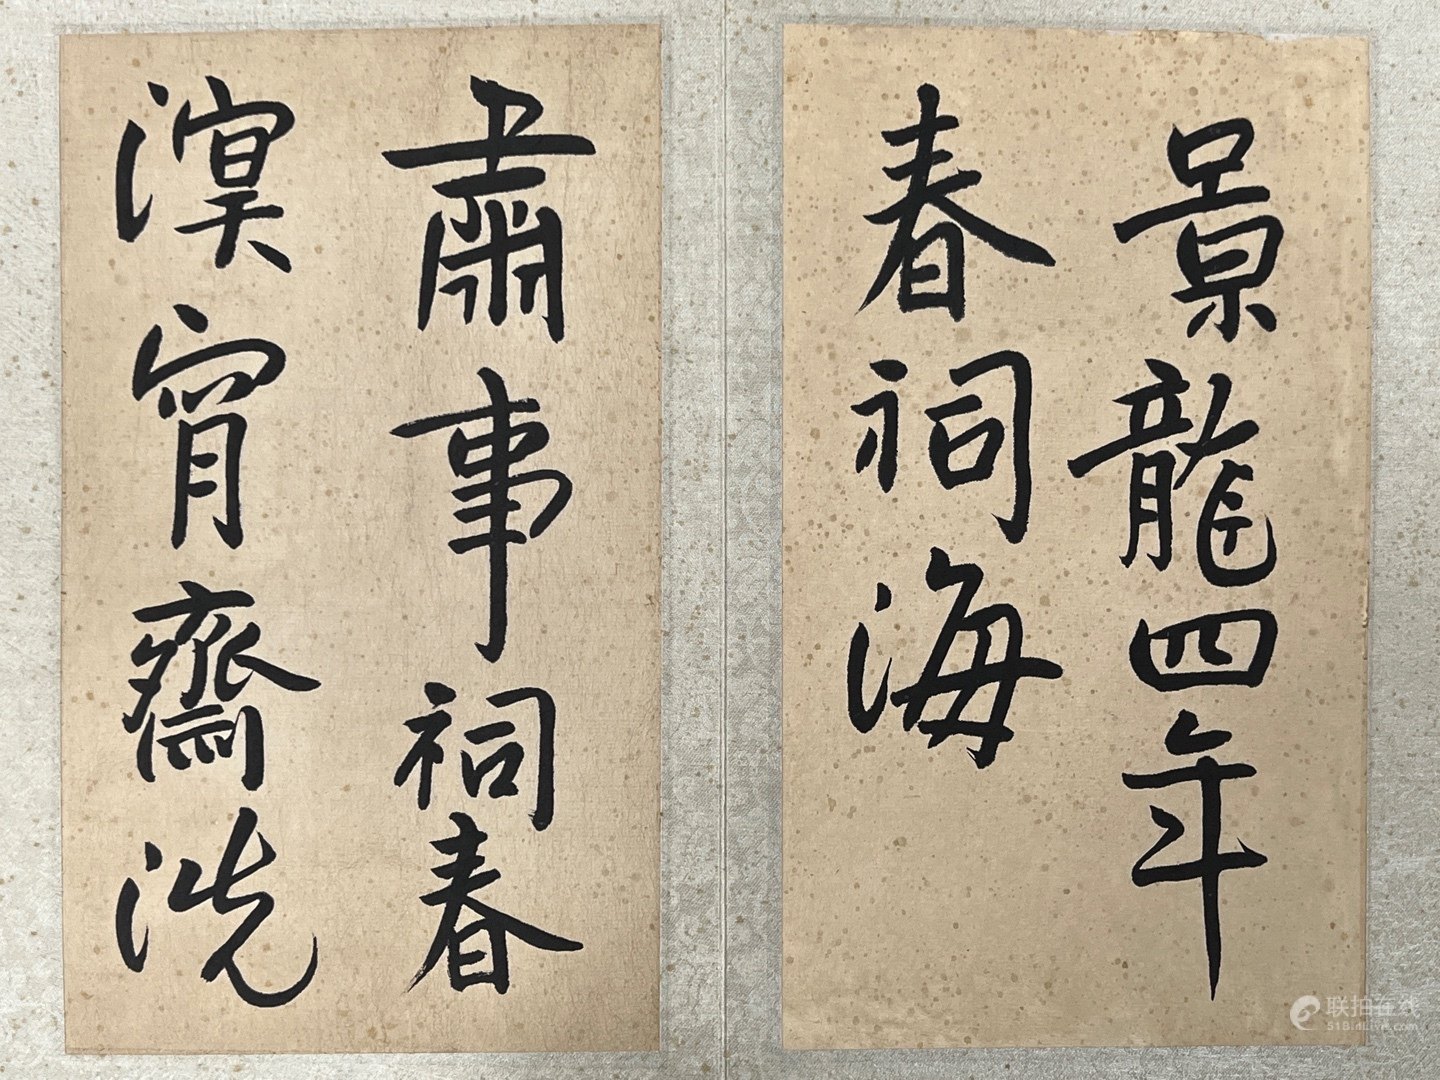 景龍四年
春祠海
肅事祠春
溟宵齋洗
联拍在线
51BidLive.com